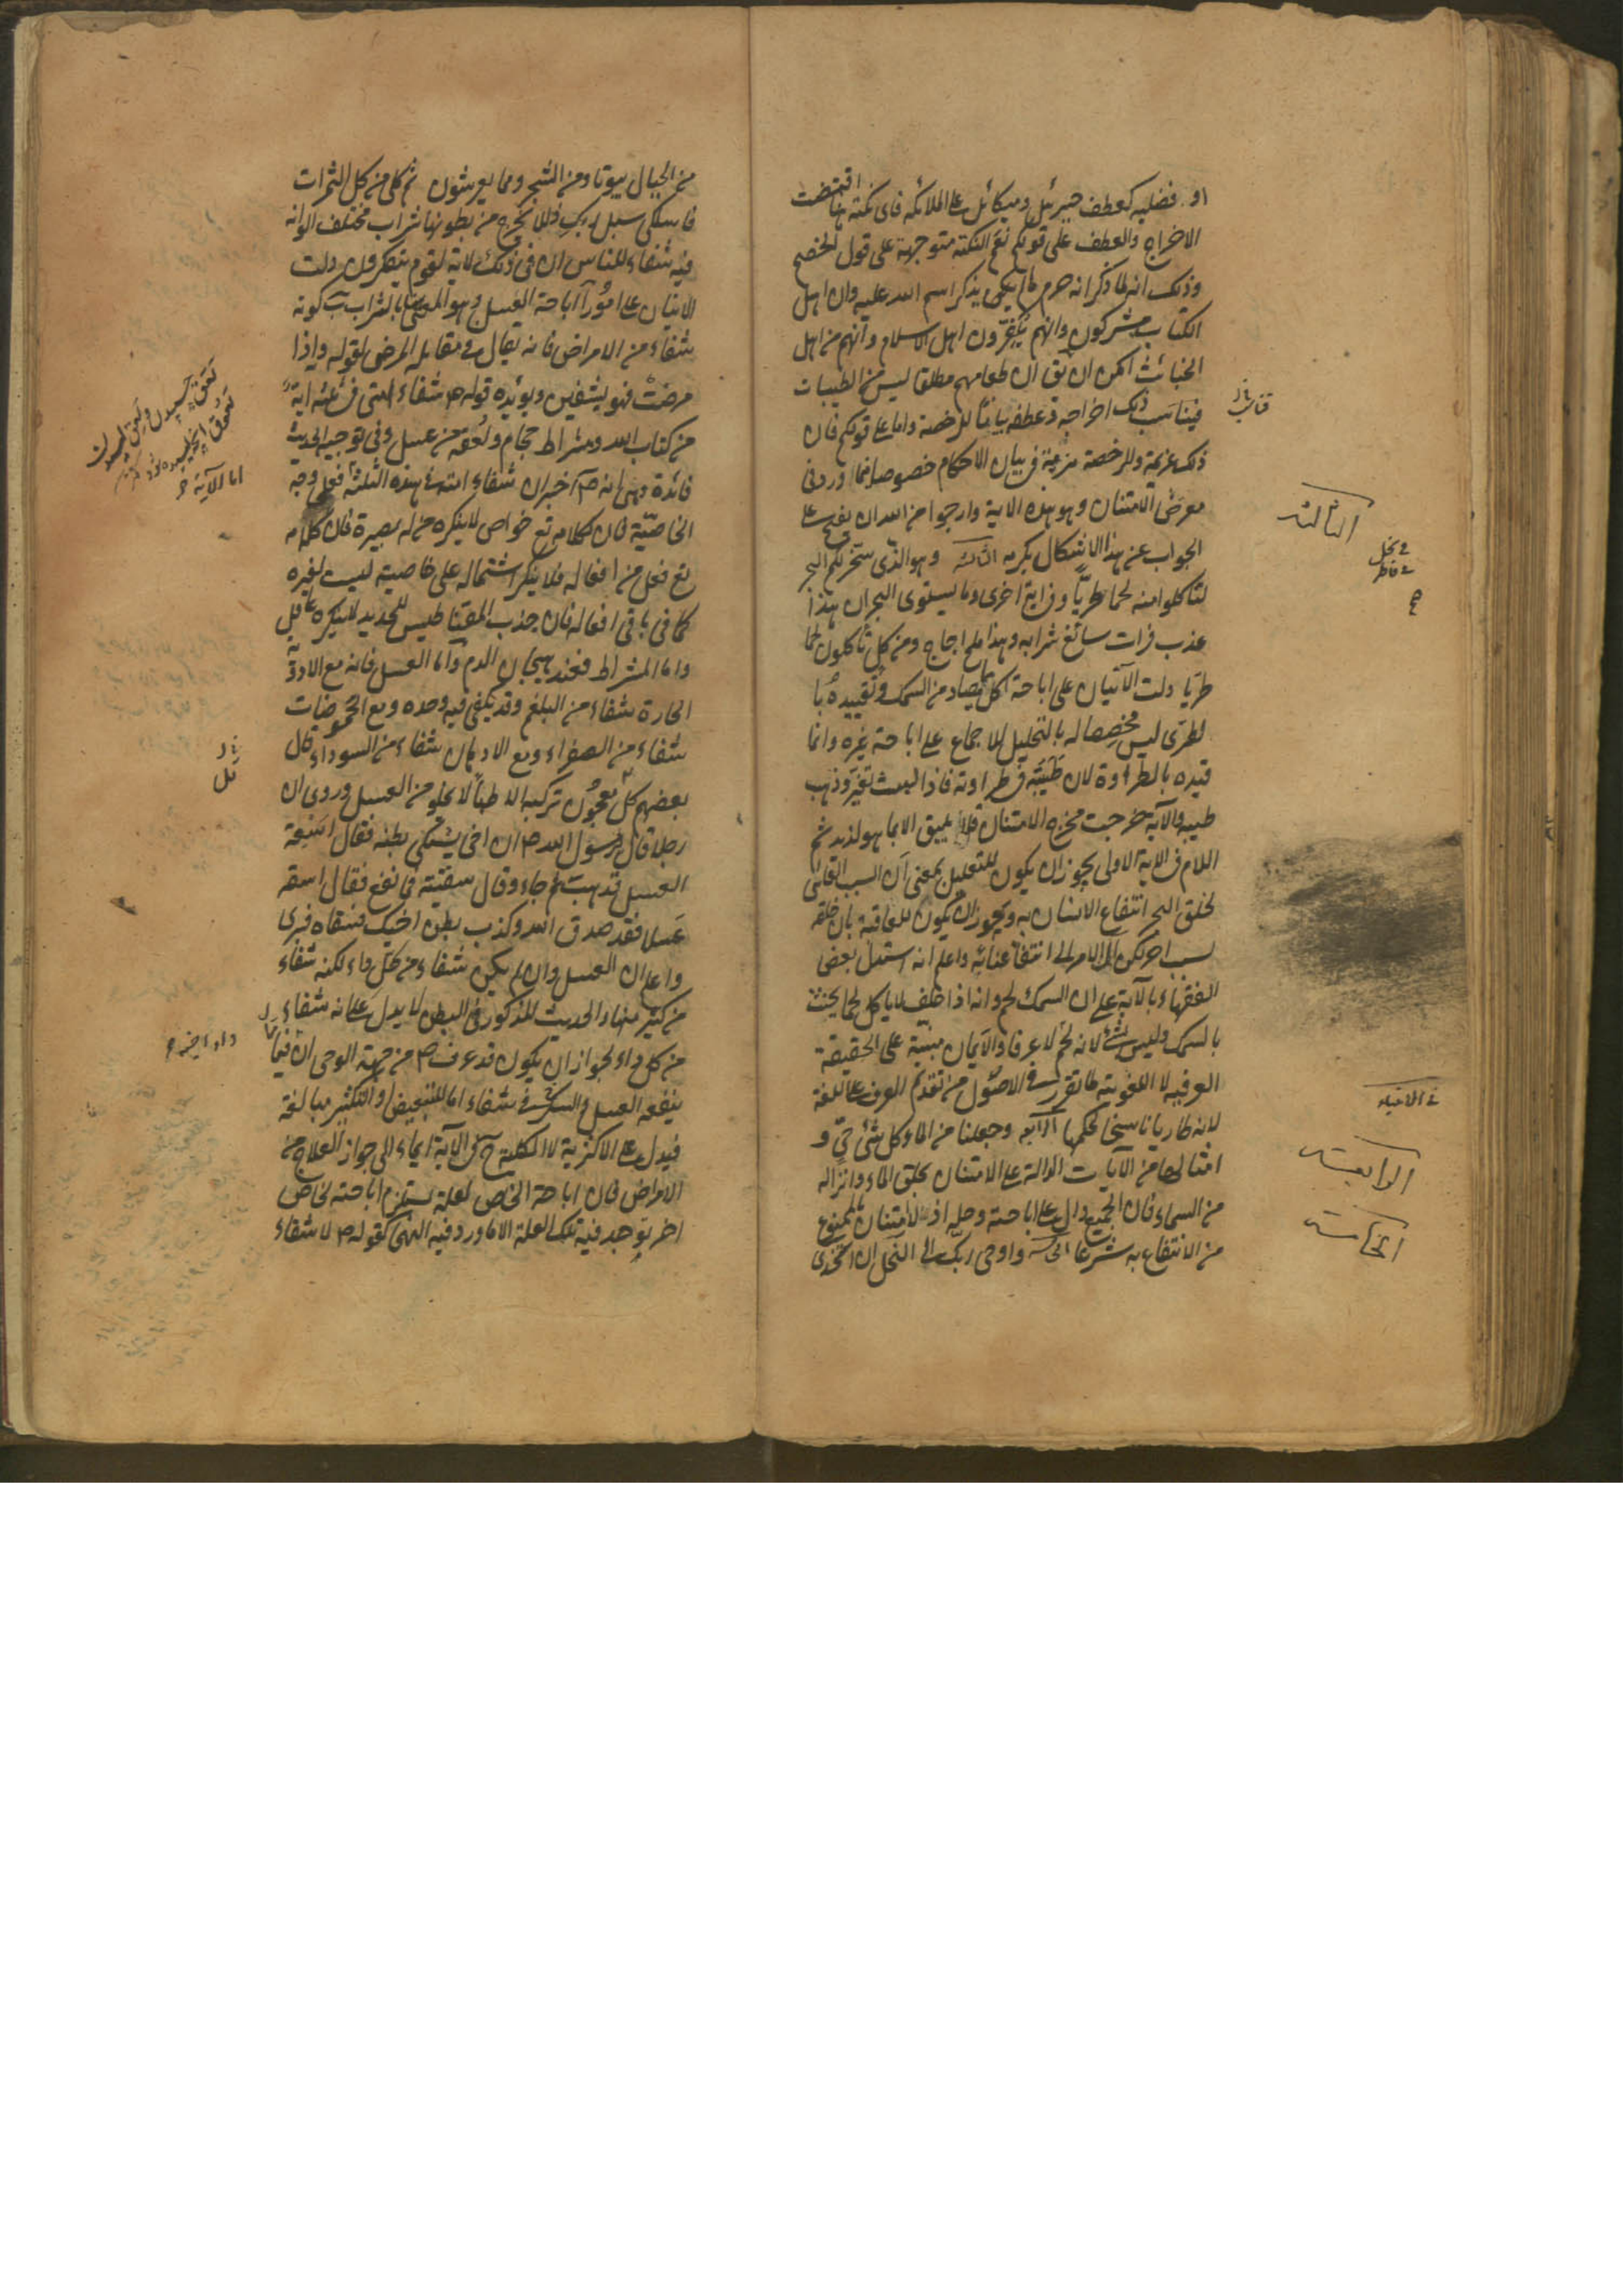 او فضليه كعطف جبرئيل وميكائل على الملائكه فاى نكتة هنا اقتضت
الاخراج والعطف على قولكم نعم النكتة متوجهة على قول الخصم
وذلك انه لما ذكر انه حرم ما لم يذكر اسم الله عليه وان اهل
الكتاب مشركون وانهم يكفرون اهل الاسلام وانهم من اهل
الخبائث امكن ان يق ان طعامهم مطلقا ليس من الطيبات
فيناسب ذلك اخراجه وعطفه بيانا للرخصة واما على قولكم فان
ذلك عزيمة وللرخصة مزية في بيان الاحكام خصوصا فيما ورد في
معرض الامتنان وهو هذه الاية وارجوا من الله ان يفتح على
الجواب عن هذا الاشكال بكرمه الثالثة وهو الذى سخر لكم البحر
لتاكلوا منه لحما طريا وفي اية اخرى وما يستوى البحران هذا
عذب فرات سائغ شرابه وهذا ملح اجاج ومن كل تاكلون لحما
طريا دلت الآيتان على اباحة اكل ما يصاد من السمك وتقييده با
لطرى ليس مخصصا له بالتحليل للاجماع على اباحة غيره وانما
قيده بالطراوة لان طيبته في طراوته فاذا لبث تغير وذهب
طيبه والآية خرجت مخرج الامتنان فلا يليق الا بما هو لذيذ ثم
اللام في الاية الاولى يجوز ان يكون للتعليل بمعنى ان السبب الغائى
لخلق البحر انتفاع الانسان به ويجوز ان يكون للعاقبة بان خلقه
لسبب اخر لكن ال الامر الى انتفاعنا به واعلم انه استدل بعض
الفقهاء بالآية على ان السمك لحم وانه اذا حلف لا ياكل لحما يحنث
بالسمك وليس بشئ لانه لحم لا عرفا والايمان مبنية على الحقيقة
العرفيه لا اللغوية لما تقرر فى الاصول من تقدم العرف على اللغة
لانه طار يا ناسخا لحكمها الرابعه وجعلنا من الماء كل شئ حي و
امثالها من الآيات الدالة على الامتنان بخلق الماء وانزاله
من السماء فان الجميع دال على اباحته وحله اذ لا امتنان بالممنوع
من الانتفاع به شرعا الخامسة واوحى ربك الى النحل ان اتخذى
الثالثه
فى الانبياء
الرابعة
الخامسة
من الجبال بيوتا ومن الشجر ومما يعرشون ثم كلى من كل الثمرات
فاسلكى سبل ربك ذللا يخرج من بطونها شراب مختلف الوانه
فيه شفاء للناس ان فى ذلك لاية لقوم يتفكرون دلت
الايتان على امور آ اباحة العسل وهو المعنى بالشراب ب كونه
شفاء من الامراض فانه يقال فى مقابلة المرض لقوله واذا
مرضت فهو يشفين ويؤيده قوله ص شفاء امتى في ثلثة اية
من كتاب الله ومشراط حجام ولعقة من عسل وفى توجيه الحديث
فائدة وهى انه ص آخبر ان شفاء امته فى هذه الثلثة فعلى وجه
الخاصية فان كلامه تع خواص لا ينكره من له بصيرة فان كلامه
تع فعل من افعاله فلا ينكر اشتماله على خاصية ليست لغيره
كما فى باقى افعاله فان جذب المقناطيس للحديد لا ينكره عاقل
واما المشراط فعند هيجان الدم واما العسل فانه مع الادوية
الحارة شفاء من البلغم وقد يكفى فيه وحده ومع الحموضات
شفاء من الصفراء ومع الادهان شفاء من السوداء قال
بعضهم كل معجون تركبه الاطباء لا يخلو من العسل وروى ان
رجلا قال لرسول الله ص ان اخى يشتكى بطنه فقال اسقه
العسل فذهب ثم جاء وقال سقيته فما نفع فقال اسقه
عسلا فقد صدق الله وكذب بطن اخيك فسقاه فبرى
واعلم ان العسل وان لم يكن شفاء من كل داء لكنه شفاء
من كثير منها والحديث المذكور فى البطن لا يدل على انه شفاء
من كل داء لجواز ان يكون قد عرف ص من جهة الوحى ان فيها
ينفعه العسل والتنكير فى شفاء اما للتبعيض او التكثير مبالغة
فيدل على الاكثرية لا الكلية ج في الآية ايماء الى جواز العلاج من
الامراض فان اباحة الخاص لعلة يستلزم اباحته لخاص
اخر توجد فيه تلك العلة الا ما ورد فيه النهى كقوله ص لا شفاء